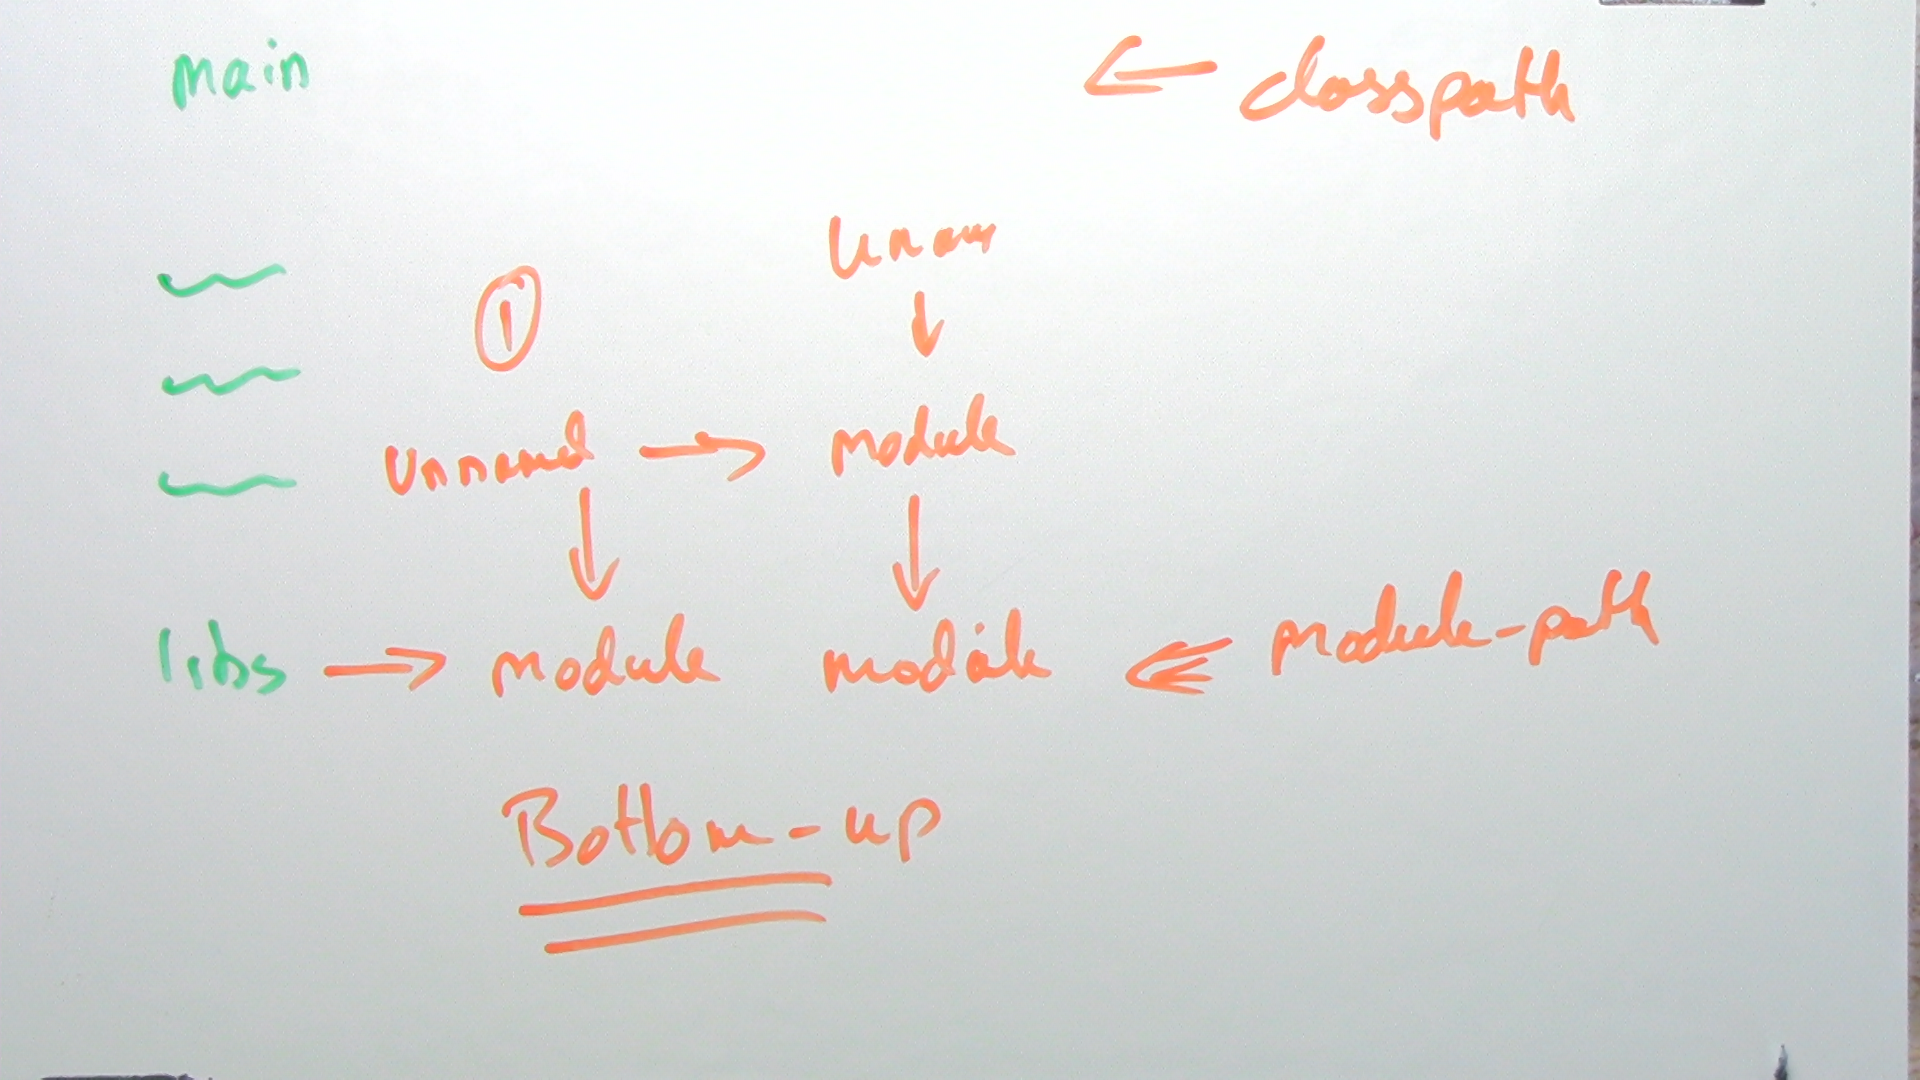 main
← classpath
unnam
①
↓
unnamed → module
↓ ↓
libs → module module ← module-path
Bottom-up